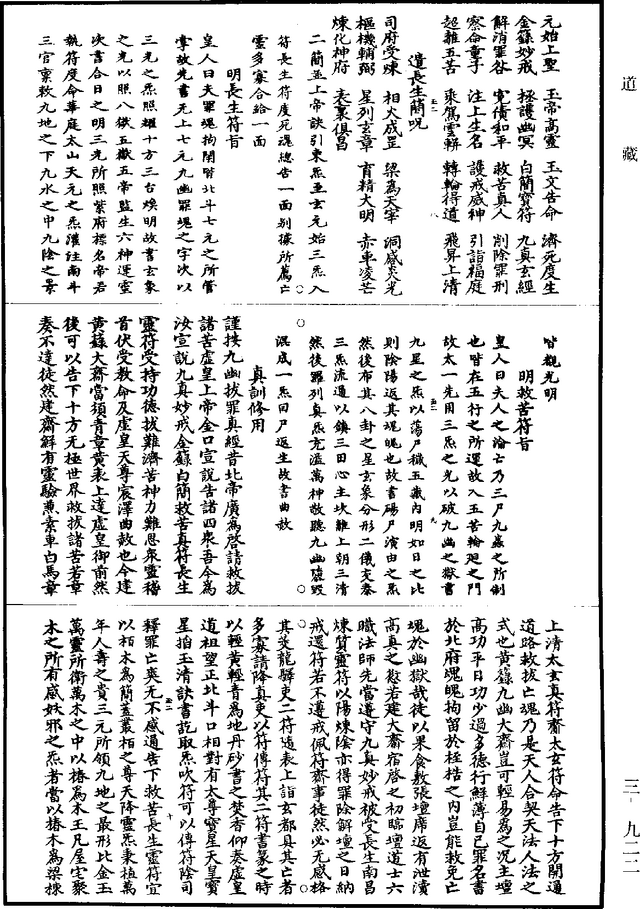 元始上聖　玉帝高靈　玉文告命　濟死度生
金籙妙戒　拯護幽冥　白簡寶符　九真玄經
解消罪咎　寃債和平　救苦真人　削除罪刑
察命童子　注上生名　護戒威神　引詣福庭
超離五苦　乘駕雲軿　轉輪得道　飛昇上清
遣長生簡呪
司府受煉　相火成罡　梁為天宰　洞感炎光
樞機輔弼　星列玄章　育精大明　赤車凌芒
煉化神府　表裏俱昌
二簡並上帝訣引東炁並玄元始三炁入
符長生符度死魂總告一面别㨿所薦亡
靈多寡合給一面
明長生符旨
皇人曰夫罪魂拘閉皆北斗七元之所管
掌故先書无上七元九幽罪魂之字次以
三光之炁照耀十方三台煥明故書玄象
之光以照八紘五嶽五帝監生六神運靈
次書合日之明三光所照紫府標名帝君
執符度命華庭太山天元之炁灌注南斗
三官禀敕九地之下九水之中九陰之景
皆觀光明
明救苦符旨
皇人曰夫人之淪亡乃三尸九蟲之所制
也皆在五行之所運故入五苦輪廻之門
故太一先用三炁之光以破九幽之獄書
九星之炁以蕩尸穢五嶽内明如日之比
則陰陽返其塊魄也故書碭尸濱由之炁
然後布其八卦之星玄象分形二儀交泰
三炁流通以鎮三田心主坎離上朝三清
然後羅列真炁充溢萬神敬聽九幽隳毁
混成一炁回尸返生故書曲赦
真訓修用
謹按九幽拔罪真經昔北帝廣為啓請救拔
諸苦虛皇上帝金口宣說告諸四衆吾今為
汝宣說九真妙戒金籙白簡救苦真符長生
靈符受持功德拔難濟苦神力難思衆靈稽
首伏受教命及虛皇天尊宸澤曲赦也今建
黄籙大齋當須青章黄表上達虛皇御前然
後可以告下十方无極世界救拔諸苦若章
奏不達徒然建齋解有靈驗薦素車白馬章
上清太玄真符齎太玄符命告下十方開通
道路救拔亡魂乃是天人合契天法人法之
式也黄籙九幽大齋豈可輕易為之况主壇
高功平日功少過多德行鮮薄自己罪名書
於北府魂魄拘留於桎梏之内豈能救免亡
魂於幽獄哉徒以果食敷張壇席返有泄瀆
高真之愆若建大齋宿啓之初臨壇道士六
職法師先當遵守九真妙戒被受長生南昌
煉質靈符以陽煉陰亦得罪除解壇之日納
戒還符若不遵戒佩符齋事徒然必无感格
其茭龍驛吏二符遶表上詣玄都具其亡者
多寡請降真吏以符傳符其二符書篆之時
以輕黄輕青為地丹砂書之焚香仰奏虛皇
道祖望正北斗口相對有太尊寶星天皇寶
星掐玉清訣書訖取炁吹符可以傳符陰司
釋罪亡爽无不感通告下救苦長生靈符宜
以栢木為簡蓋叢栢之尊天降靈炁秉植萬
年人壽之貴三元所領九地之最形比金玉
萬靈所衛萬木之中以椿為本王凡屋宅聚
木之所有感妖邪之炁者當以椿木為梁棟
道藏
三-九二二